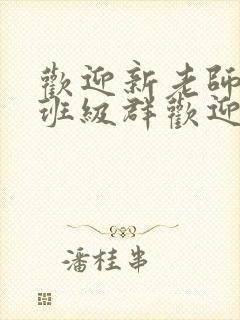 歡迎新老師
班級群歡迎
潘桂串